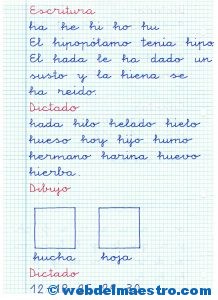 Escritura
ha he hi ho hu
El hipopótamo tenía hipo
El hada le ha dado un
susto y la hiena se
ha reído.
Dictado
hada hilo helado hielo
hueso hoy hijo humo
hermano harina huevo
hierba.
Dibujo
hucha hoja
Dictado
12 - 18
© webdelmaestro.com